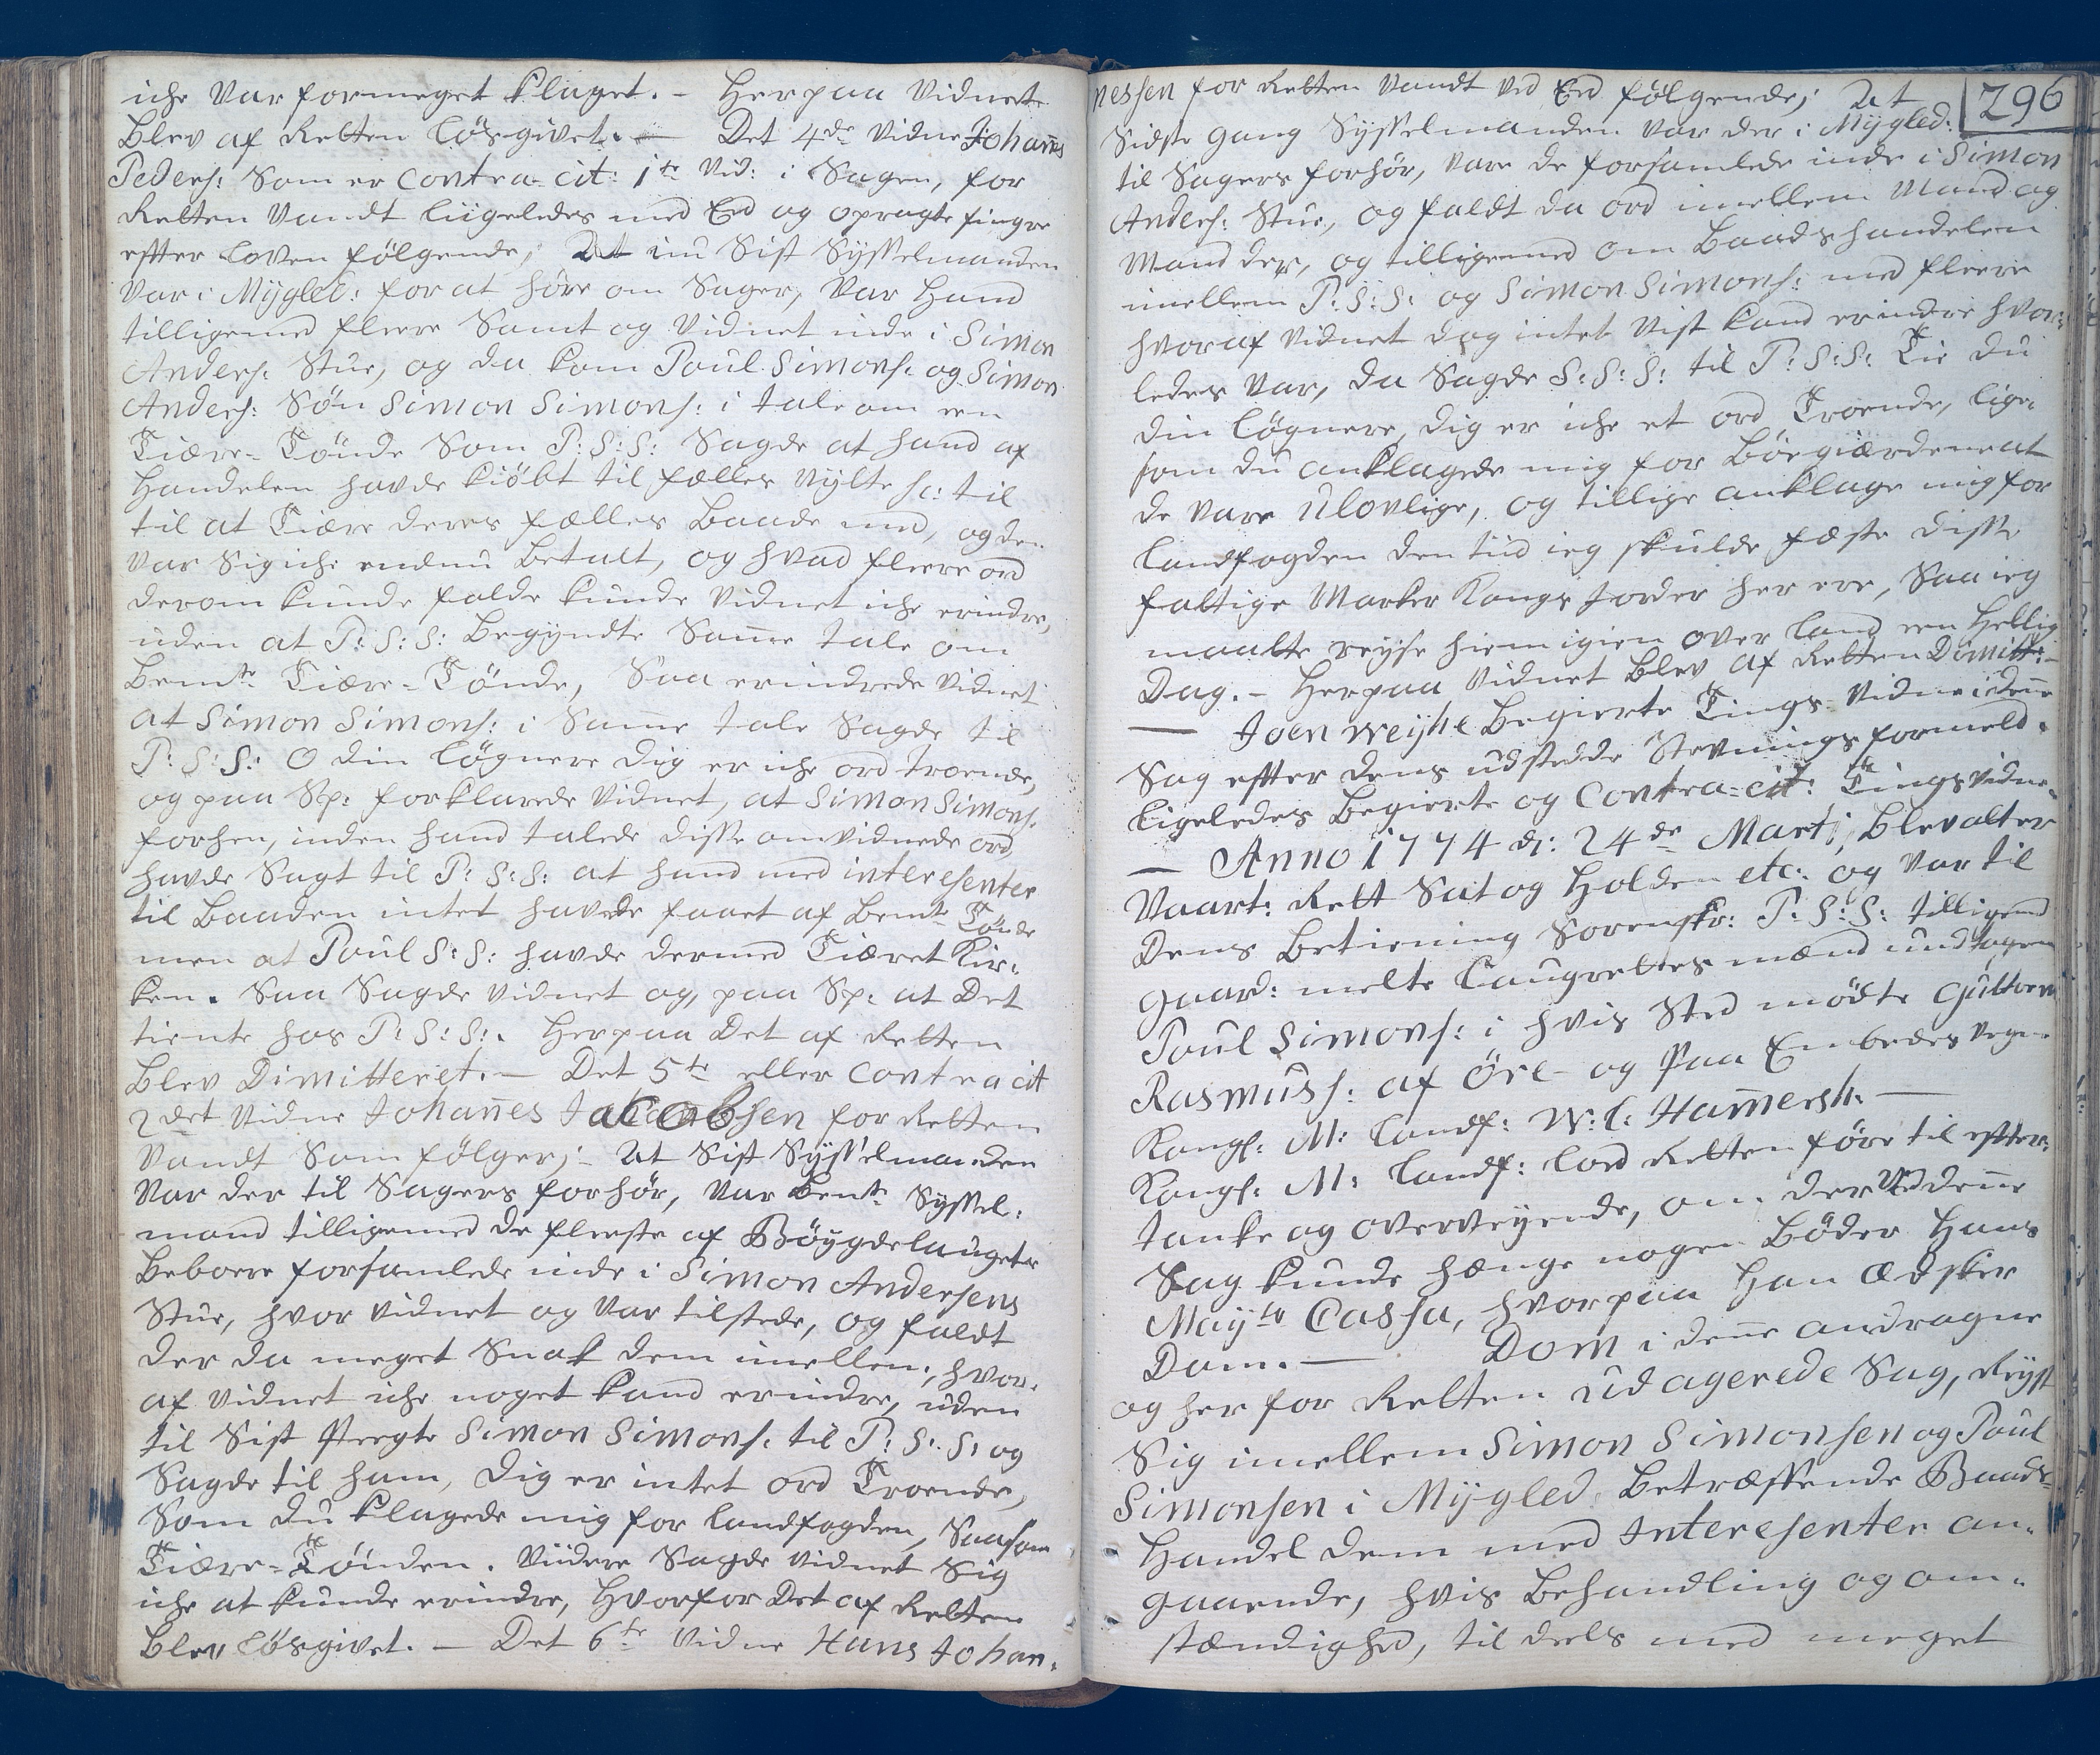 iche var formeget klaget. – Herpaa Vidnete
blev af Retten løsgivet. — Det 4de Vidne Johañes
Peders: som er contra-cit: 1te Vid: i Sagen, for
Retten vandt liigeledes med Eed og opragte fingre
effter loven følgende; At nu Sist Sysselmanden
var i Mÿgled: for at høre om Sager, var hand
tilligemed fleere Samt og Vidnet inde i Simon
Anders: Stue, og da kom Poul Simons: og Simon
Anders: Søn Simon Simons: i tale om een
Tiære-Tönde Som P: S: S: Sagde at hand af
Handelen havde kiöbt til fælles nÿtte sc: til
til at Tiære deres fælles Baade med, og den
var Sig iche endnu betalt, og hvad fleere ord
derom kunde falde kunde Vidnet iche erindre,
uden at P: S: S: begÿndte Sam̃e tale om
bemte Tiære-Tönde, Saa erindrede Vidnet
at Simon Simons: i Sam̃e tale Sagde til
P: S: S: O din Løgnere dig er iche ord troende,
og paa Sp: forklarede Vidnet, at Simon Simons:
forhen, inden hand talede disse omvidnede ord,
havde Sagt til P: S: S: at hand med interesenter
til Baaden intet havde faaet af bemte Tönde
men at Poul S: S: havde dermed Tiæret Kir:
ken. Saa Sagde Vidnet og, paa Sp: at Det
tiente hos P: S: S:. Herpaa Det af Retten
blev Dimitteret. – Det 5te eller contra cit
2det Vidne Johañes Jacobsen for Retten
vandt Som følger; – At Sist Sysselmanden
var der til Sagers forhør, var bemte Syssel:
mand tilligemed de fleeste af Böÿgdelaugets
beboere forsamlede inde i Simon Andersens
Stue, hvor Vidnet og var tilstede, og faldt
der da meget Snak dem imellen, hvor.
af Vidnet iche noget kand erindre, uden
til Sist Peegte Simon Simons: til P: S: S: og
Sagde til ham, dig er intet ord Troende,
Som du klagede mig for landfogden, Saasom
Tiære-Tönden. Viidere Sagde Vidnet Sig
iche at kunde erindre, Hvorfor Det af Retten
blev løsgivet. – Det 6te Vidne Hans Johan:
296
nessen for Retten vandt ved Eed følgende; At
Sidste gang Sysselmanden var der i Mÿgled:
til Sagers forhør, vare de forsamlede inde i Simon
Anders: Stue, og faldt da ord imellem Mand og
Mand der, og tilligemed om Baadshandelen
imellem P: S: S: og Simon Simons: med fleere
hvoraf Vidnet dog intet vist kand erindre hvor:
ledes var, da Sagde S: S: S: til P: S: S: Tie du
din Løgnere, dig er iche et ord Troende, lige:
som du anklagede mig for Böegiærderne at
de vare Ulovlige, og tillige anklage mig for
landfogden den tiid ieg skulde fæste disse
fattige Marker Kongs Jorder her ere, Saa ieg
maatte reÿse hiem igien over land een Hellig
Dag. – Herpaa Vidnet blev af Retten Dimitte:
— Joen Weÿhe begierte Tings-Vidne i deñe
Sag effter dens udstedde Stevnings formeld.
Ligeledes begierte og Contra-cit: Tingsvidne.
— Anno 1774 d: 24de Martj, blev atter
Vaart: Rett Sat og Holden etc: og var til
Dens betiening Sorenskr: P: S: S: tilligemed
gaard: melte Laugrettesmænd undtagen
Poul Simons: i hvis Sted mødte Guttorm
Rasmuss: af Öre – og Paa Embedes vegne
Kongl: M: Landf: W: L: Ham̃ersh. —
Kongl: M: Landf: lod Retten føre til effter:
tanke og overveÿende, om der Ved deñe
Sag kunde hænge nogen Böder Hans
Maÿts Cassa, hvorpaa Han Ædsker
Dom. — Dom i deñe andragne
og her for Retten udagerede Sag, Reÿst
Sig imellem Simon Simonsen og Poul
Simonsen i Mÿgled, betræffende Baads-
Handel dem med Interesenter an:
gaaende, hvis behandling og om:
stændighed, til deels med meget